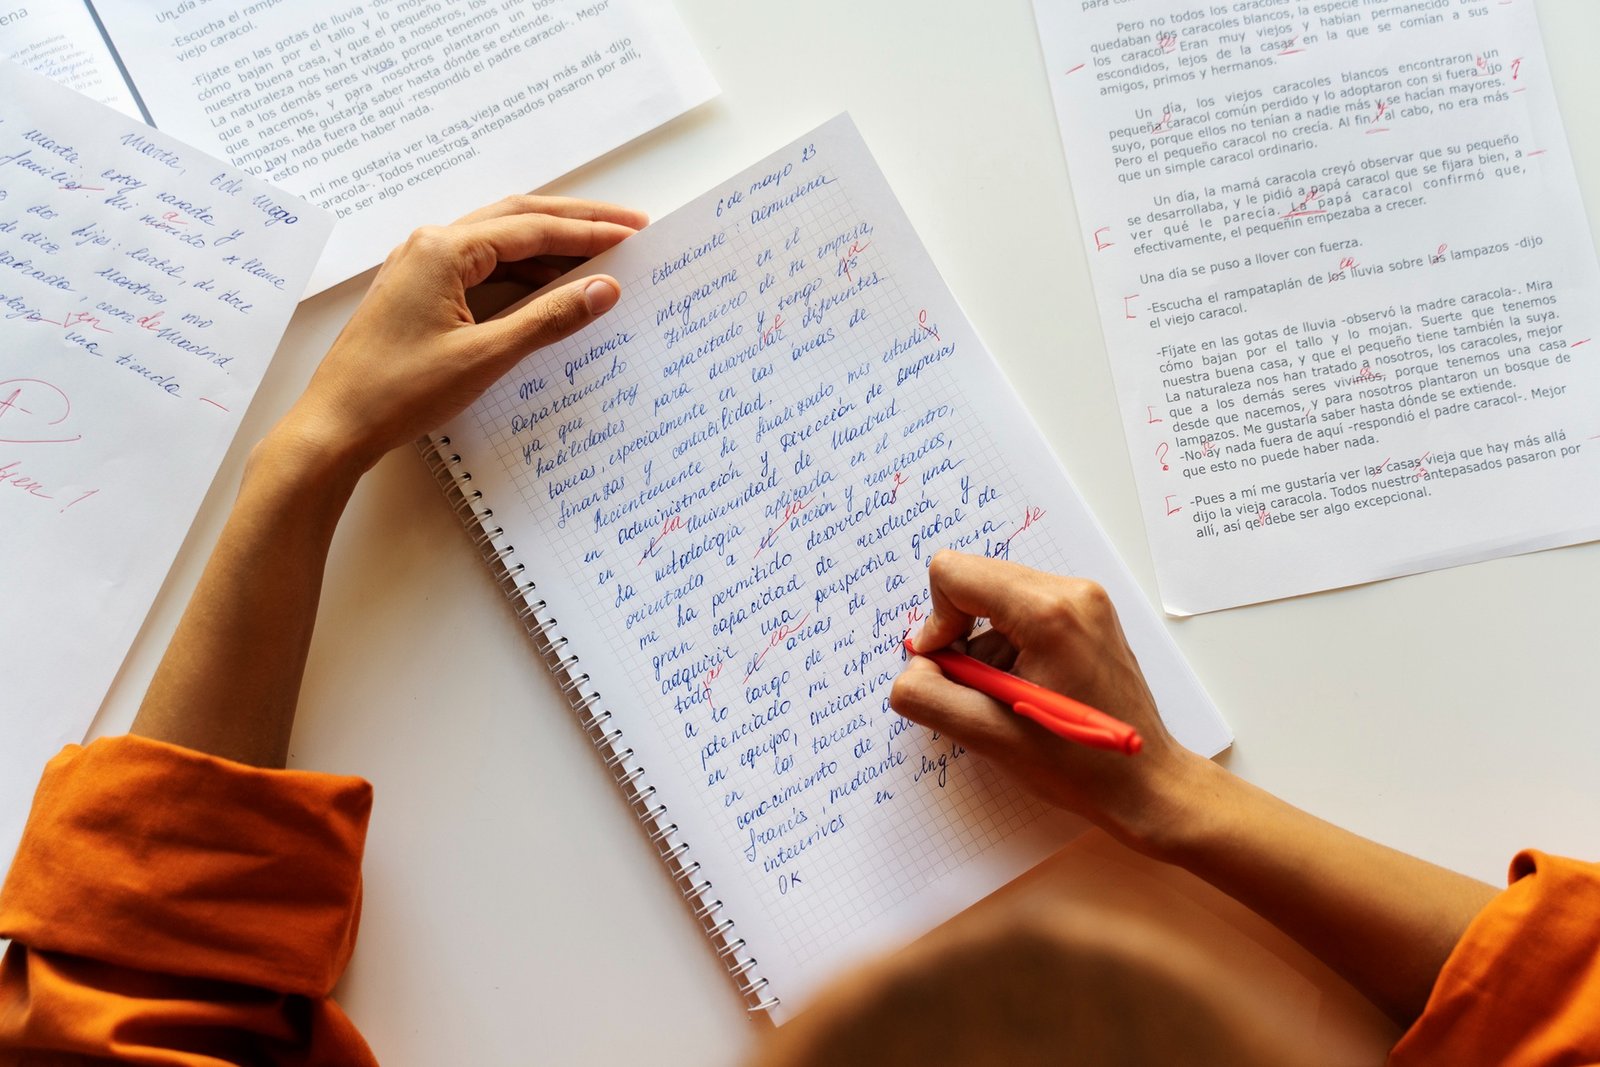 Un día se
-Escucha el rampata
viejo caracol.
-Fíjate en las gotas de lluvia -ob
cómo bajan por el tallo y lo moj
nuestra buena casa, y que el pequeño
La naturaleza nos han tratado a nosotros, los
que a los demás seres vivos, porque tenemos una
que nacemos, y para nosotros plantaron un bos
lampazos. Me gustaría saber hasta dónde se extiende.
No hay nada fuera de aquí -respondió el padre caracol-. Mejor
esto no puede haber nada.
a mí me gustaría ver la casa vieja que hay más allá -dijo
aracola-. Todos nuestros antepasados pasaron por allí,
be ser algo excepcional.
Marta, 6 de Mayo
marta. estoy casada y
familia. Mi marido a
se llama
dos hijos: Isabel, de doce
de diez
nosotros
cerca de Madrid.
en una tienda
A-
6 de mayo 23
Estudiante: Almudena
Me gustaría integrarme en el
Departamento Financiero de su empresa,
ya que estoy capacitado y tengo los a
habilidades para desarrollar e diferentes
tareas, especialmente en las áreas de
finanzas y contabilidad.
Recientemente he finalizado mis estudios o
en administración y Dirección de Empresas
en el la Universidad de Madrid.
La metodología aplicada en el centro,
orientada a el la acción y resultados,
me ha permitido desarrollas r una
gran capacidad de resolución y
adquirir una perspectiva global de
todo as el la areas de la empresa.
a lo largo de mi formac hay he
potenciado mi espíritu u
en equipo, iniciativa
en las tareas, a
conocimiento de idi
francés, mediante
intensivos en Ingl
OK
para con
Pero no todos los caracoles
quedaban dos caracoles blancos, la especie más
los caracol es. Eran muy viejos y habían permanecido bien
escondidos, lejos de la casas en la que se comían a sus
amigos, primos y hermanos.
Un día, los viejos caracoles blancos encontraron un
pequeña caracol común perdido y lo adoptaron con si fuera ijo ?
suyo, porque ellos no tenían a nadie más y se hacían mayores.
Pero el pequeño caracol no crecía. Al fin y al cabo, no era más
que un simple caracol ordinario.
Un día, la mamá caracola creyó observar que su pequeño
se desarrollaba, y le pidió a papá caracol que se fijara bien, a
ver qué le parecía. La papá caracol confirmó que,
efectivamente, el pequeñin empezaba a crecer.
Una día se puso a llover con fuerza.
-Escucha el rampataplán de los la lluvia sobre las e lampazos -dijo
el viejo caracol.
-Fíjate en las gotas de lluvia -observó la madre caracola-. Mira
cómo bajan por el tallo y lo mojan. Suerte que tenemos
nuestra buena casa, y que el pequeño tiene también la suya.
La naturaleza nos han tratado a nosotros, los caracoles, mejor
que a los demás seres vivimos, porque tenemos una casa
desde que nacemos, y para nosotros plantaron un bosque de
lampazos. Me gustaría saber hasta dónde se extiende.
? -No ay nada fuera de aquí -respondió el padre caracol-. Mejor
que esto no puede haber nada.
-Pues a mí me gustaría ver las casas vieja que hay más allá
dijo la vieja caracola. Todos nuestro s antepasados pasaron por
allí, así qe debe ser algo excepcional.